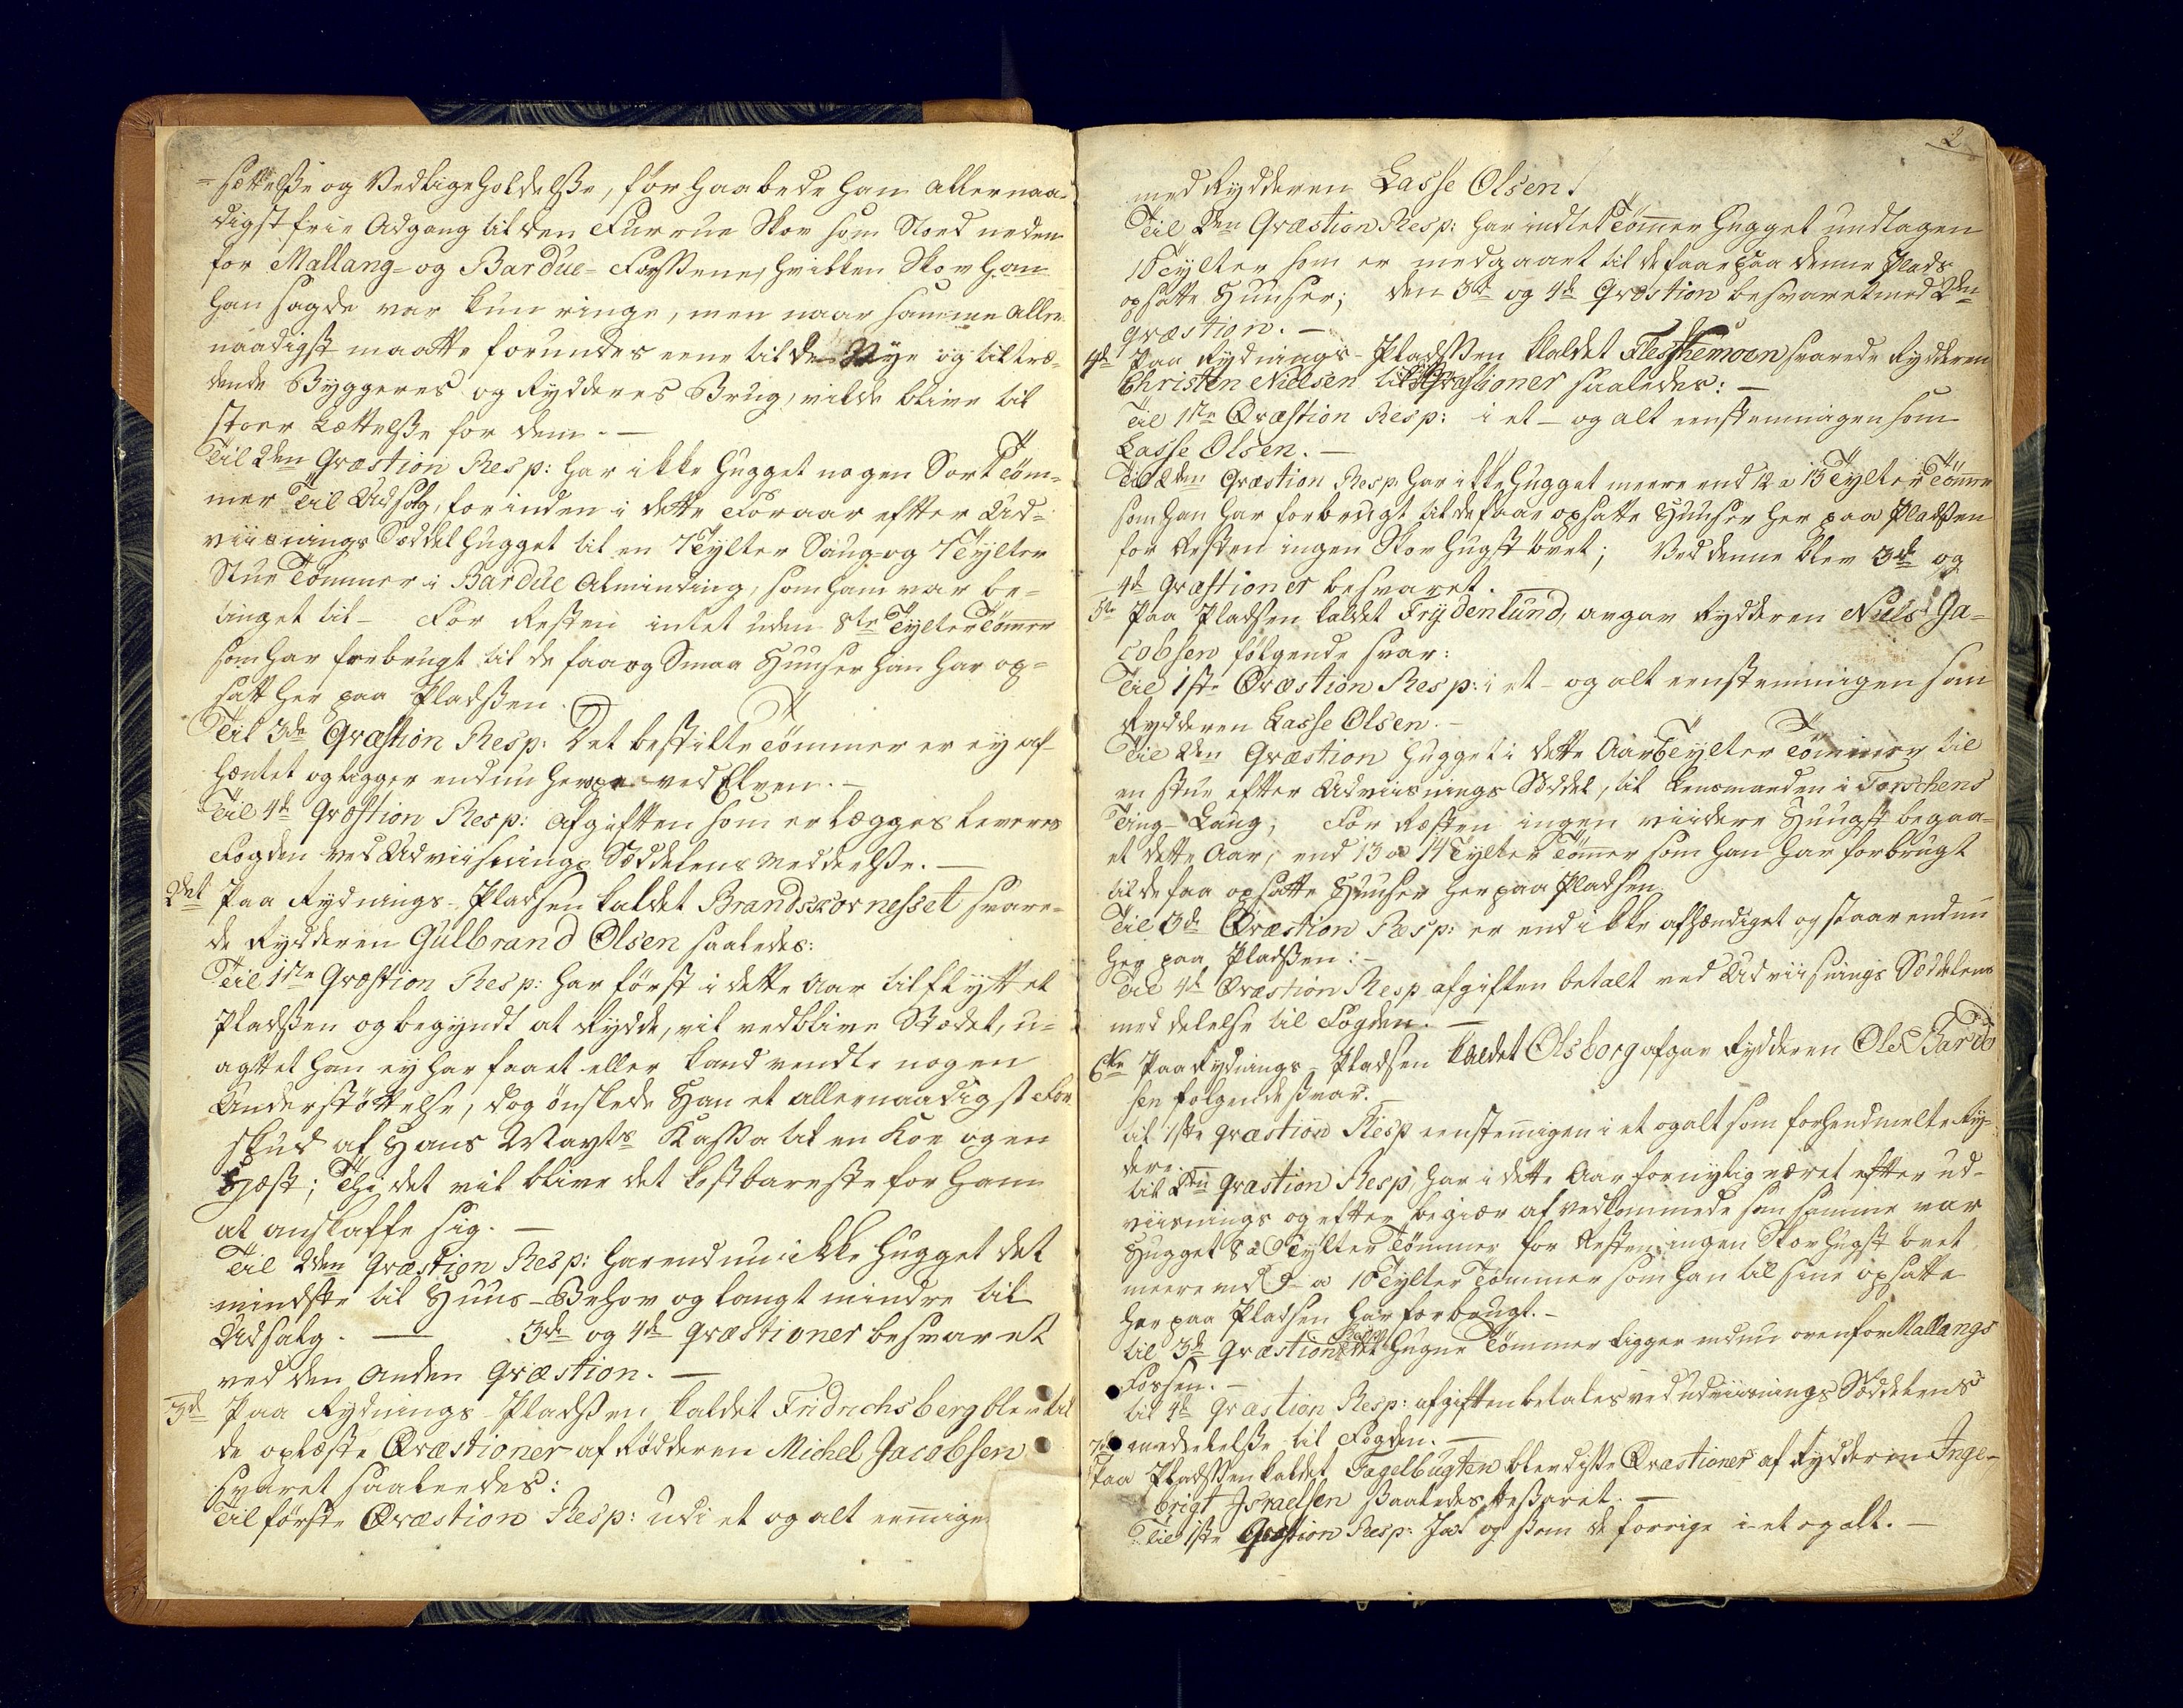 =sættelße og Vedligeholdelße, forhaabede han allernaa-
digst frie Adgang til den Furrue Skov som Stoed neden
for Mallang- og Bardue-Foßene, hvilken Skov han
han sagde var kun ringe, men naar samme aller
naadigst maatte forundes eene til de Nye og tiltræ-
dende Byggeres og Rydderes Brug, vilde blive til
stoer Lættelße for dem. —
Til 2den Qvæstion Resp: har ikke hugget nogen Sort Töm-
mer Til Udsalg, forinden i dette Foraar efter Ud-
viisnings Sæddel hugget til en Tylter Saug- og Tylter
Stue Tömmer i Bardue Alminding, som ham var be-
tinget til — For Resten intet uden 8te Tylter Tömer
som har forbrugt til de faa og Smaa Huuser han har op-
satt her paa Pladßen.
Til 3de Qvæstion Resp: Det bestilte Tömmer er ey af-
hæntet og ligger endnu her ved Elven. —
Til 4de Qvæstion Resp: Afgiften som erlægges leveres
Fogden ved Udviisnings Sæddelens Meddeelße. —
2det Paa Rydnings-Pladsen kaldet Brandskornesset svare-
de Rydderen Gulbrand Olsen saaledes:
Til 1ste Qvæstion Resp: har först i dette Aar tilflyttet
Pladßen og begyndt at Rydde, vil vedblive Stædet, u-
agtet han ey har faaet eller kand vendte nogen
Understöttelse, dog önskede Han et allernaadigst For
skud af Hans Mayts Kassa til en Koe og en
Hæst; Thi det vil blive det kostbareste for ham
at anskaffe sig. —
Til 2den Qvæstion Resp: har endnu ikke hugget det
mindste til Huus-Behov og langt mindre til
Udsalg. — 3de og 4de Qvæstioner besvaret
ved den Anden Qvæstion. —
3de Paa Rydnings-Pladßen kaldet Fridrichsberg blev til
de oplæste Qvæstioner af Rödderen Michel Jacobsen
svaret saaleedes:
Til förste Qvæstion Resp: udi et og alt eenige
2
med Rydderen Lasse Olsen.
Til 2den Qvæstion Resp: har indtet Tömer hugget undtagen
10 Tylter som er medgaaet til de faae paa denne Plads
opsatte Huuser; den 3de og 4de Qvæstion besvaret med 2den
Qvæstion. —
4de Paa Rydnings-Pladßen kaldet Fleskemoen svarede Rydderen
Christen Nielsen til Qvæstioner saaledes: —
Til 1ste Qvæstion Resp: i et- og alt eenstemmigen som
Lasse Olsen. —
Til 2den Qvæstion Resp har ikke hugget meere end 12 a 13 Tylter Tömer
som han har forbrugt til de faae opsatte Huuser her paa Pladßen
for Resten ingen Skovhugst övet; Ved denne blev 3de og
4de Qvæstioner besvaret.
5te Paa Pladsen kaldet Frydenlund, avgav Rydderen Niels Ja-
cobsen fölgende svar:
Til 1ste Qvæstion Resp: i et- og alt eenstemmigen som
Rydderen Lasse Olsen. —
Til 2den Qvæstion hugget i dette Aar Tylter Tömmer til
en Stue efter Udviisnings Sæddel, til Lensmanden i Torschens
Ting-Laug; For Resten ingen viidere Huugst begaa-
et dette Aar, end 13 a 14 Tylter Tömer som han har forbrugt
til de faa opsatte Huuser her paa Pladsen.
Til 3de Qvæstion Resp: er end ikke afhændiget og staar endnu
her paa Pladßen: —
Til 4de Qvæstion Resp afgiften betalt ved Udviisnings Sæddelens
meddelelse til Fogden. —
6te Paa Rydnings-Pladsen kaldet Olsborg afgav Rydderen Ole Bardo
sen folgende svar.
til 1ste Qvæstion Resp eenstemigen i et og alt som forhendmelte Ry-
dere.
til 2den Qvæstion Resp, har i dette Aar fornylig været efter ud-
viisnings og efter begiær af vedkommede som samme var
hugget 8 a 9 Tylter Tömmer for Resten ingen Skovhugst övet
meere end 9 a 10 Tylter Tömmer som han til sine opsatte
her paa Pladsen har forbrugt. —
til 3de Qvæstion Resp det hugne Tömmer ligger endnu ovenfor Mallangs
Fossen. —
til 4de Qvæstion Resp: afgiften betales ved udviisnings Sæddelens
7de meddelelße til Fogden. —
Paa Pladßen kaldet Fagelbugten blev diße Qvæstioner af Rydderen Inge-
brigt Israelsen saaledes besvaret. —
Til 1ste Qvæstion Resp: Jæt og som de forrige i et og alt. —